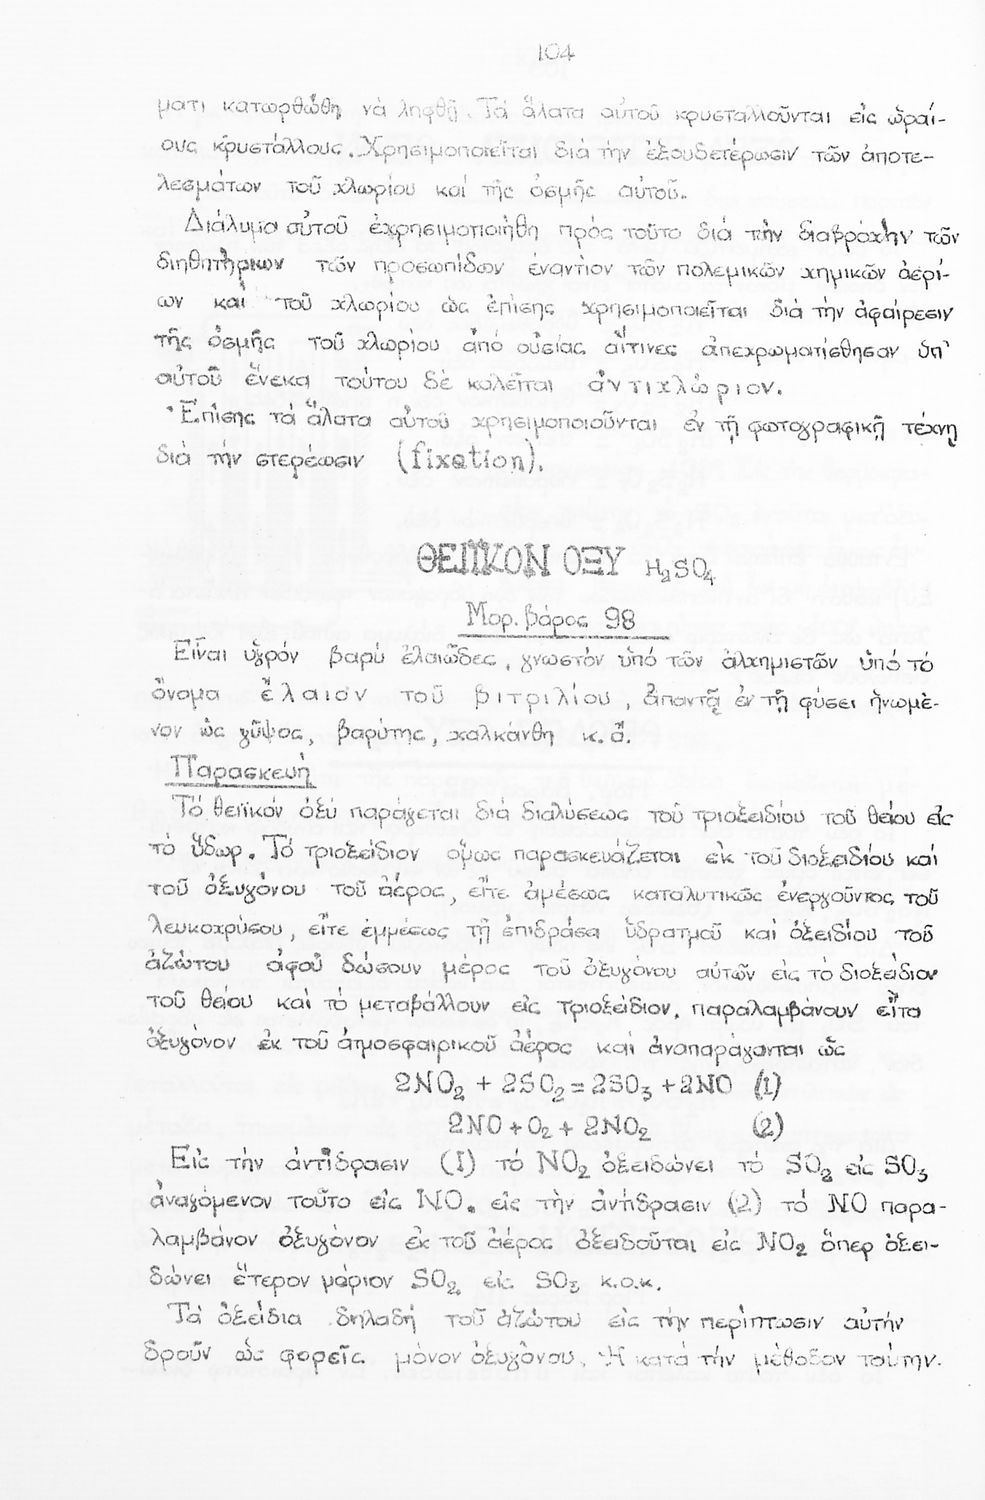 104
ματι κατωρθώθη νά ληφθῇ. Τά ἅλατα αὐτοῦ κρυσταλλοῦνται εἰς ὡραί-
ους κρυστάλλους. Χρησιμοποιεῖται διά τήν ἐξουδετέρωσιν τῶν ἀποτε-
λεσμάτων τοῦ χλωρίου καί τῆς ὀσμῆς αὐτοῦ.
Διάλυμα αὐτοῦ ἐχρησιμοποιήθη πρός τοῦτο διά τήν διαβροχήν τῶν
διηθητηρίων τῶν προσωπίδων ἐναντίον τῶν πολεμικῶν χημικῶν ἀερί-
ων καί τοῦ χλωρίου ὡς ἐπίσης χρησιμοποιεῖται διά τήν ἀφαίρεσιν
τῆς ὀσμῆς τοῦ χλωρίου ἀπό οὐσίας αἵτινες ἀπεχρωματίσθησαν ὑπ'
αὐτοῦ ἕνεκα τούτου δέ καλεῖται ἀντιχλώριον.
Ἐπίσης τά ἅλατα αὐτοῦ χρησιμοποιοῦνται ἐν τῇ φωτογραφικῇ τέχνῃ
διά τήν στερέωσιν (fixation).
ΘΕΙΪΚΟΝ ΟΞΥ H₂SO₄
Μορ. βάρος 98
Εἶναι ὑγρόν βαρύ ἐλαιῶδες, γνωστόν ὑπό τῶν ἀλχημιστῶν ὑπό τό
ὄνομα ἔλαιον τοῦ βιτριλίου, ἀπαντᾷ ἐν τῇ φύσει ἡνωμέ-
νον ὡς γῦψος, βαρύτης, χαλκάνθη κ.ἄ.
Παρασκευή
Τό θειϊκόν ὀξύ παράγεται διά διαλύσεως τοῦ τριοξειδίου τοῦ θείου εἰς
τό ὕδωρ. Τό τριοξείδιον ὅμως παρασκευάζεται ἐκ τοῦ διοξειδίου καί
τοῦ ὀξυγόνου τοῦ ἀέρος, εἴτε ἀμέσως καταλυτικῶς ἐνεργοῦντος τοῦ
λευκοχρύσου, εἴτε ἐμμέσως τῇ ἐπιδράσει ὑδρατμοῦ καί ὀξειδίου τοῦ
ἀζώτου ἀφοῦ δώσουν μέρος τοῦ ὀξυγόνου αὐτῶν εἰς τό διοξείδιον
τοῦ θείου καί τό μεταβάλλουν εἰς τριοξείδιον, παραλαμβάνουν εἶτα
ὀξυγόνον ἐκ τοῦ ἀτμοσφαιρικοῦ ἀέρος καί ἀναπαράγονται ὡς
2NO₂ + 2SO₂ = 2SO₃ + 2NO (1)
2NO + O₂ + 2NO₂ (2)
Εἰς τήν ἀντίδρασιν (1) τό NO₂ ὀξειδώνει τό SO₂ εἰς SO₃
ἀναγόμενον τοῦτο εἰς NO. εἰς τήν ἀντίδρασιν (2) τό NO παρα-
λαμβάνον ὀξυγόνον ἐκ τοῦ ἀέρος ὀξειδοῦται εἰς NO₂ ὅπερ ὀξει-
δώνει ἕτερον μόριον SO₂ εἰς SO₃ κ.ο.κ.
Τά ὀξείδια δηλαδή τοῦ ἀζώτου εἰς τήν περίπτωσιν αὐτήν
δροῦν ὡς φορεῖς μόνον ὀξυγόνου. Ἡ κατά τήν μέθοδον ταύτην.